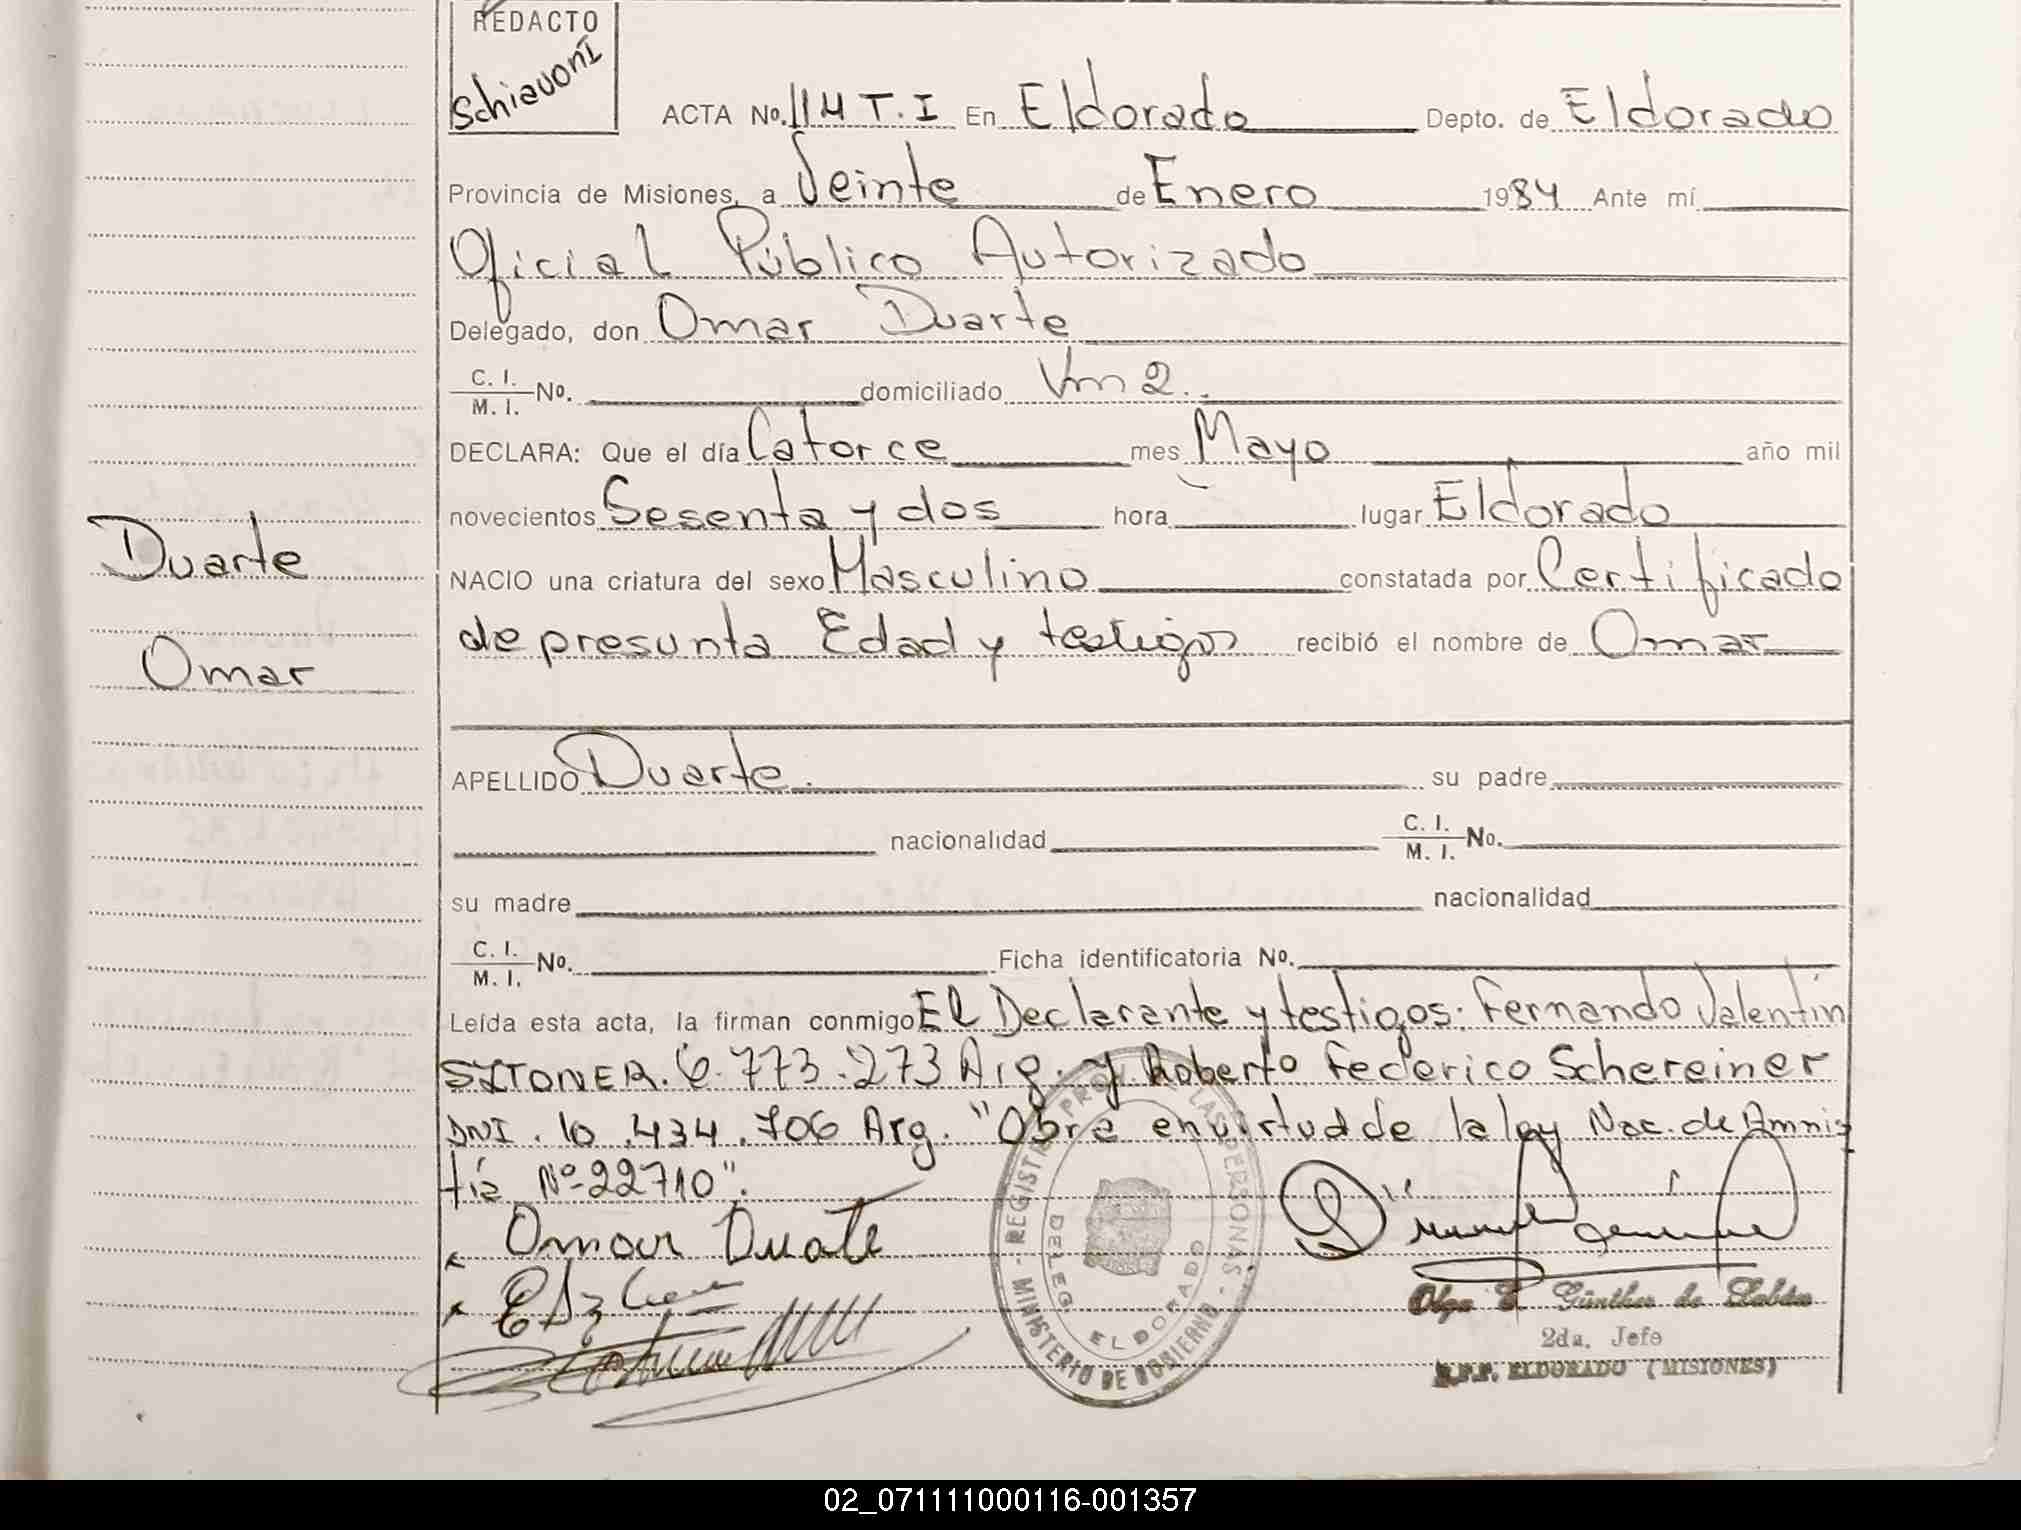 REDACTO
Schiavoni
ACTA No. 114 T.I En Eldorado Depto. de Eldorado
Provincia de Misiones, a Veinte de Enero 1984 Ante mí
Oficial Público Autorizado
Delegado, don Omar Duarte
C. I. / M. I. No. domiciliado Km 2.
DECLARA: Que el día Catorce mes Mayo año mil
novecientos Sesenta y dos hora lugar Eldorado
Duarte
NACIO una criatura del sexo Masculino constatada por Certificado
de presunta Edad y testigos recibió el nombre de Omar
Omar
APELLIDO Duarte. su padre
nacionalidad C. I. / M. I. No.
su madre nacionalidad
C. I. / M. I. No. Ficha identificatoria No.
Leída esta acta, la firman conmigo El Declarante y testigos: Fernando Valentín
6.773.273 Arg. y Roberto Federico Schereiner
DNI. 10.434.706 Arg. "Obra en virtud de la ley Nac. de Amnis
tia Nº 22710".
Omar Duate
REGISTRO PROV. LAS PERSONAS - MINISTERIO DE GOBIERNO -
DELEG. ELDORADO
Olga Günther de
2da. Jefe
R.P.P. ELDORADO (MISIONES)
02_071111000116-001357